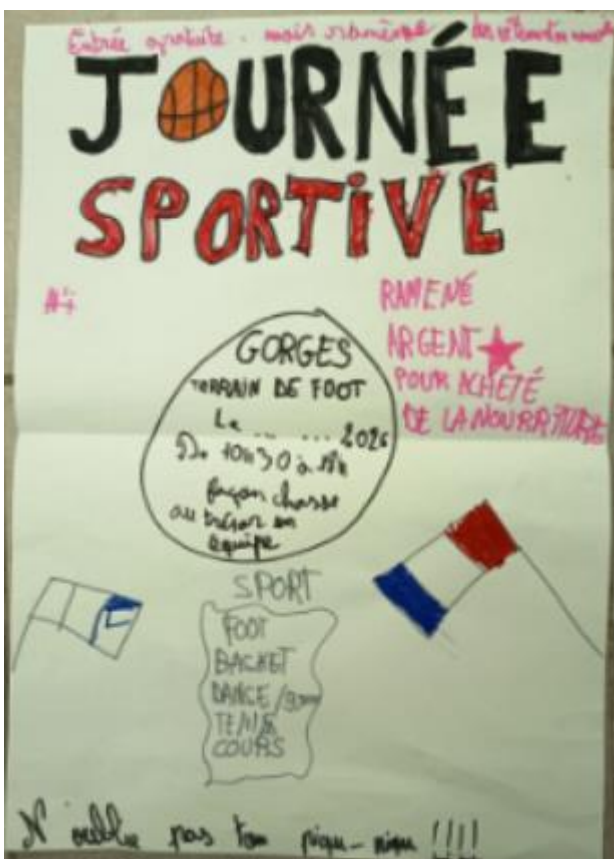 Entrée gratuite. mais ramène des
JOURNÉE
SPORTIVE
RAMENÉ
ARGENT
POUR ACHETÉ
DE LA NOURRITURE
GORGES
TERRAIN DE FOOT
Le ... ... 2026
De 10h30 à
façon chasse
au trésor en
équipe
SPORT
FOOT
BACKET
DANCE /
TENIS
COURS
N'oublie pas ton pique-nique !!!!